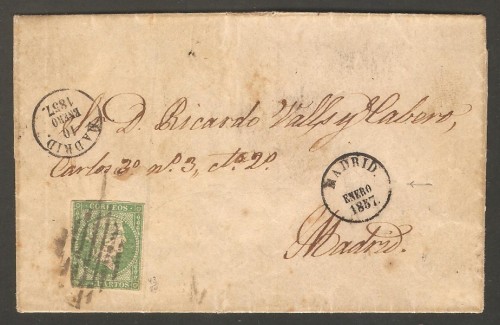 MADRID.
10
ENERO
1857.
S. D. Ricardo Valls y Cabero,
Carlos 3º nº. 3, cto. 2º.
MADRID.
ENERO
1857.
Madrid.
CORREOS
CUARTOS